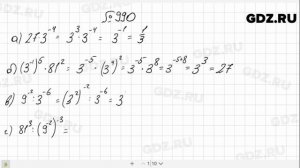 GDZ.RU
№990
а) 27·3⁻⁴ = 3³·3⁻⁴ = 3⁻¹ = 1/3
б) (3⁻¹)⁵·81² = 3⁻⁵·(3⁴)² = 3⁻⁵·3⁸ = 3⁻⁵⁺⁸ = 3³ = 27
в) 9⁻²:3⁻⁶ = (3²)⁻²:3⁻⁶ = 3
г) 81³:(9⁻²)⁻³ =
GDZ.RU